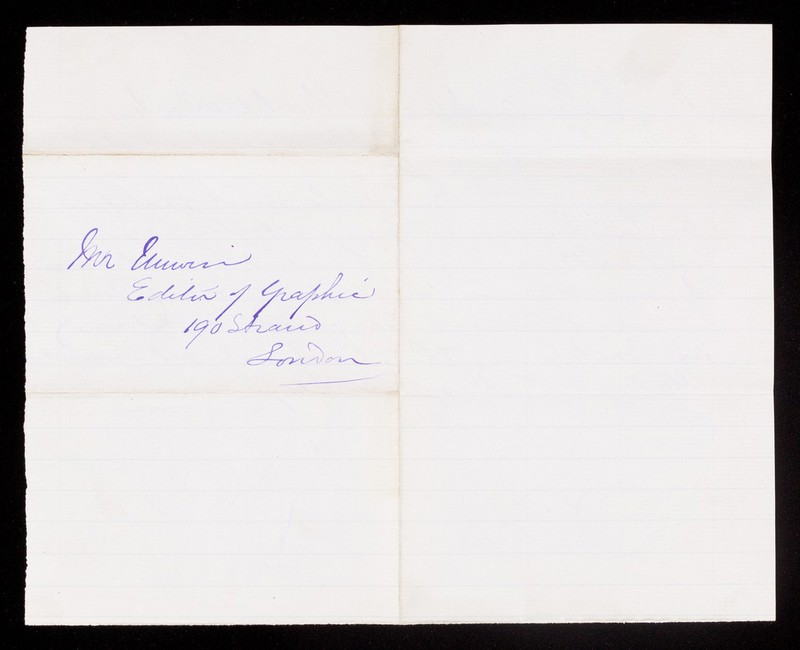 Mr Unwin
Editor of Graphic
190 Strand
London